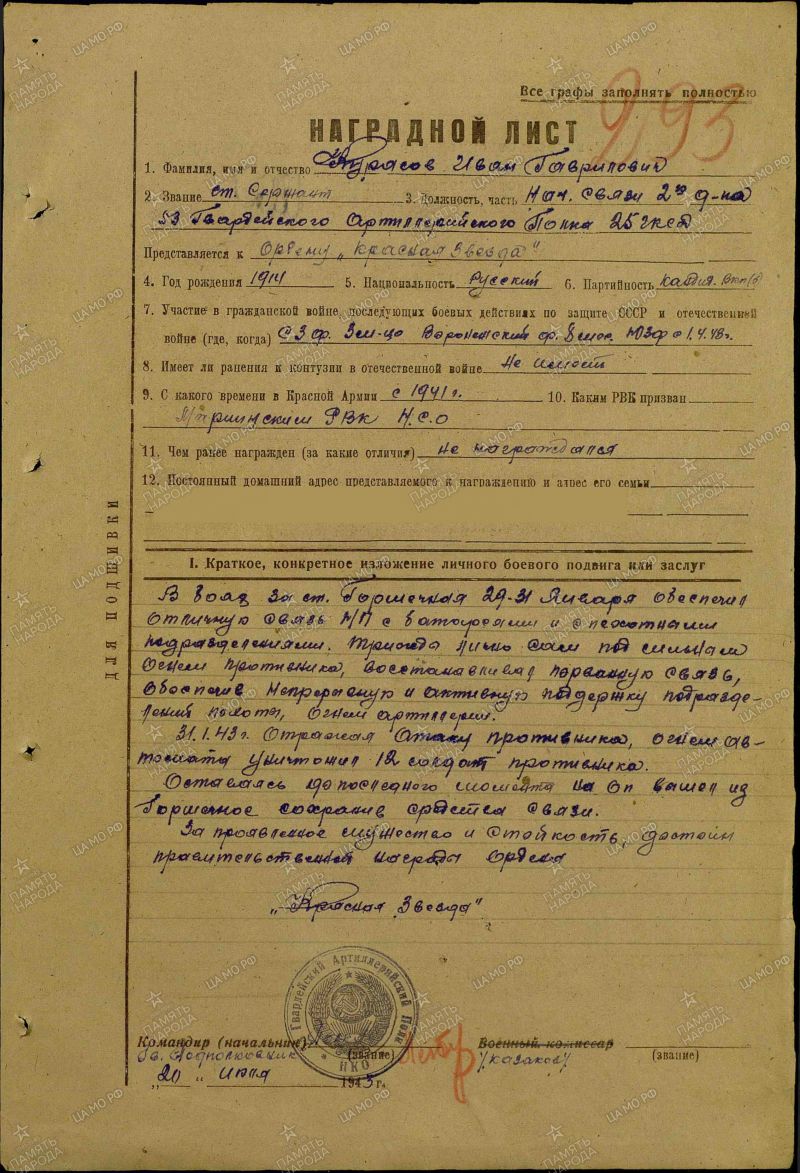 Все графы заполнять полностью
993
НАГРАДНОЙ ЛИСТ
1. Фамилия, имя и отчество Иван Гаврилович
2. Звание ст. Сержант 3. Должность, часть Нач. связи 2го д-на
53 Гвардейского Артиллерийского Полка 25 гксд
Представляется к Ордену „Красная Звезда"
4. Год рождения 1914 5. Национальность Русский 6. Партийность кандид. ВКП(б)
7. Участие в гражданской войне, последующих боевых действиях по защите СССР и отечественной
войне (где, когда) СЗФ. Воронежский ф. ЮЗФ с 1.4.43г.
8. Имеет ли ранения и контузии в отечественной войне Не имеет
9. С какого времени в Красной Армии с 1941 г. 10. Каким РВК призван
РВК Н.С.О
11. Чем ранее награжден (за какие отличия) не награждался
12. Постоянный домашний адрес представляемого к награждению и адрес его семьи
ДЛЯ ПОДШИВКИ
I. Краткое, конкретное изложение личного боевого подвига или заслуг
В боях за ст. Горшечная 29-31 Января обеспечил
отличную связь Н/П с батареями и с пехотными
подразделениями. Трижды лично сам под сильным
огнем противника, восстанавливал порванную связь,
обеспечив непрерывную и активную поддержку подразде-
лений пехоты, огнем артиллерии.
31.1.43г. Отражая атаку противника, огнем ав-
томата уничтожил 12 солдат противника.
Оставаясь до последнего момента на ОП вышел из
Горшечное сохранив средства связи.
За проявленное мужество и стойкость, достоин
правительственной награды Ордена
„Красная Звезда"
Гвардейский Артиллерийский Полк
НКО
Командир (начальник) Военный комиссар
Гв. Подполковник (звание) /Казаков/ (звание)
„20" Июля 1943 г.
ПАМЯТЬ НАРОДА
ЦАМО.РФ